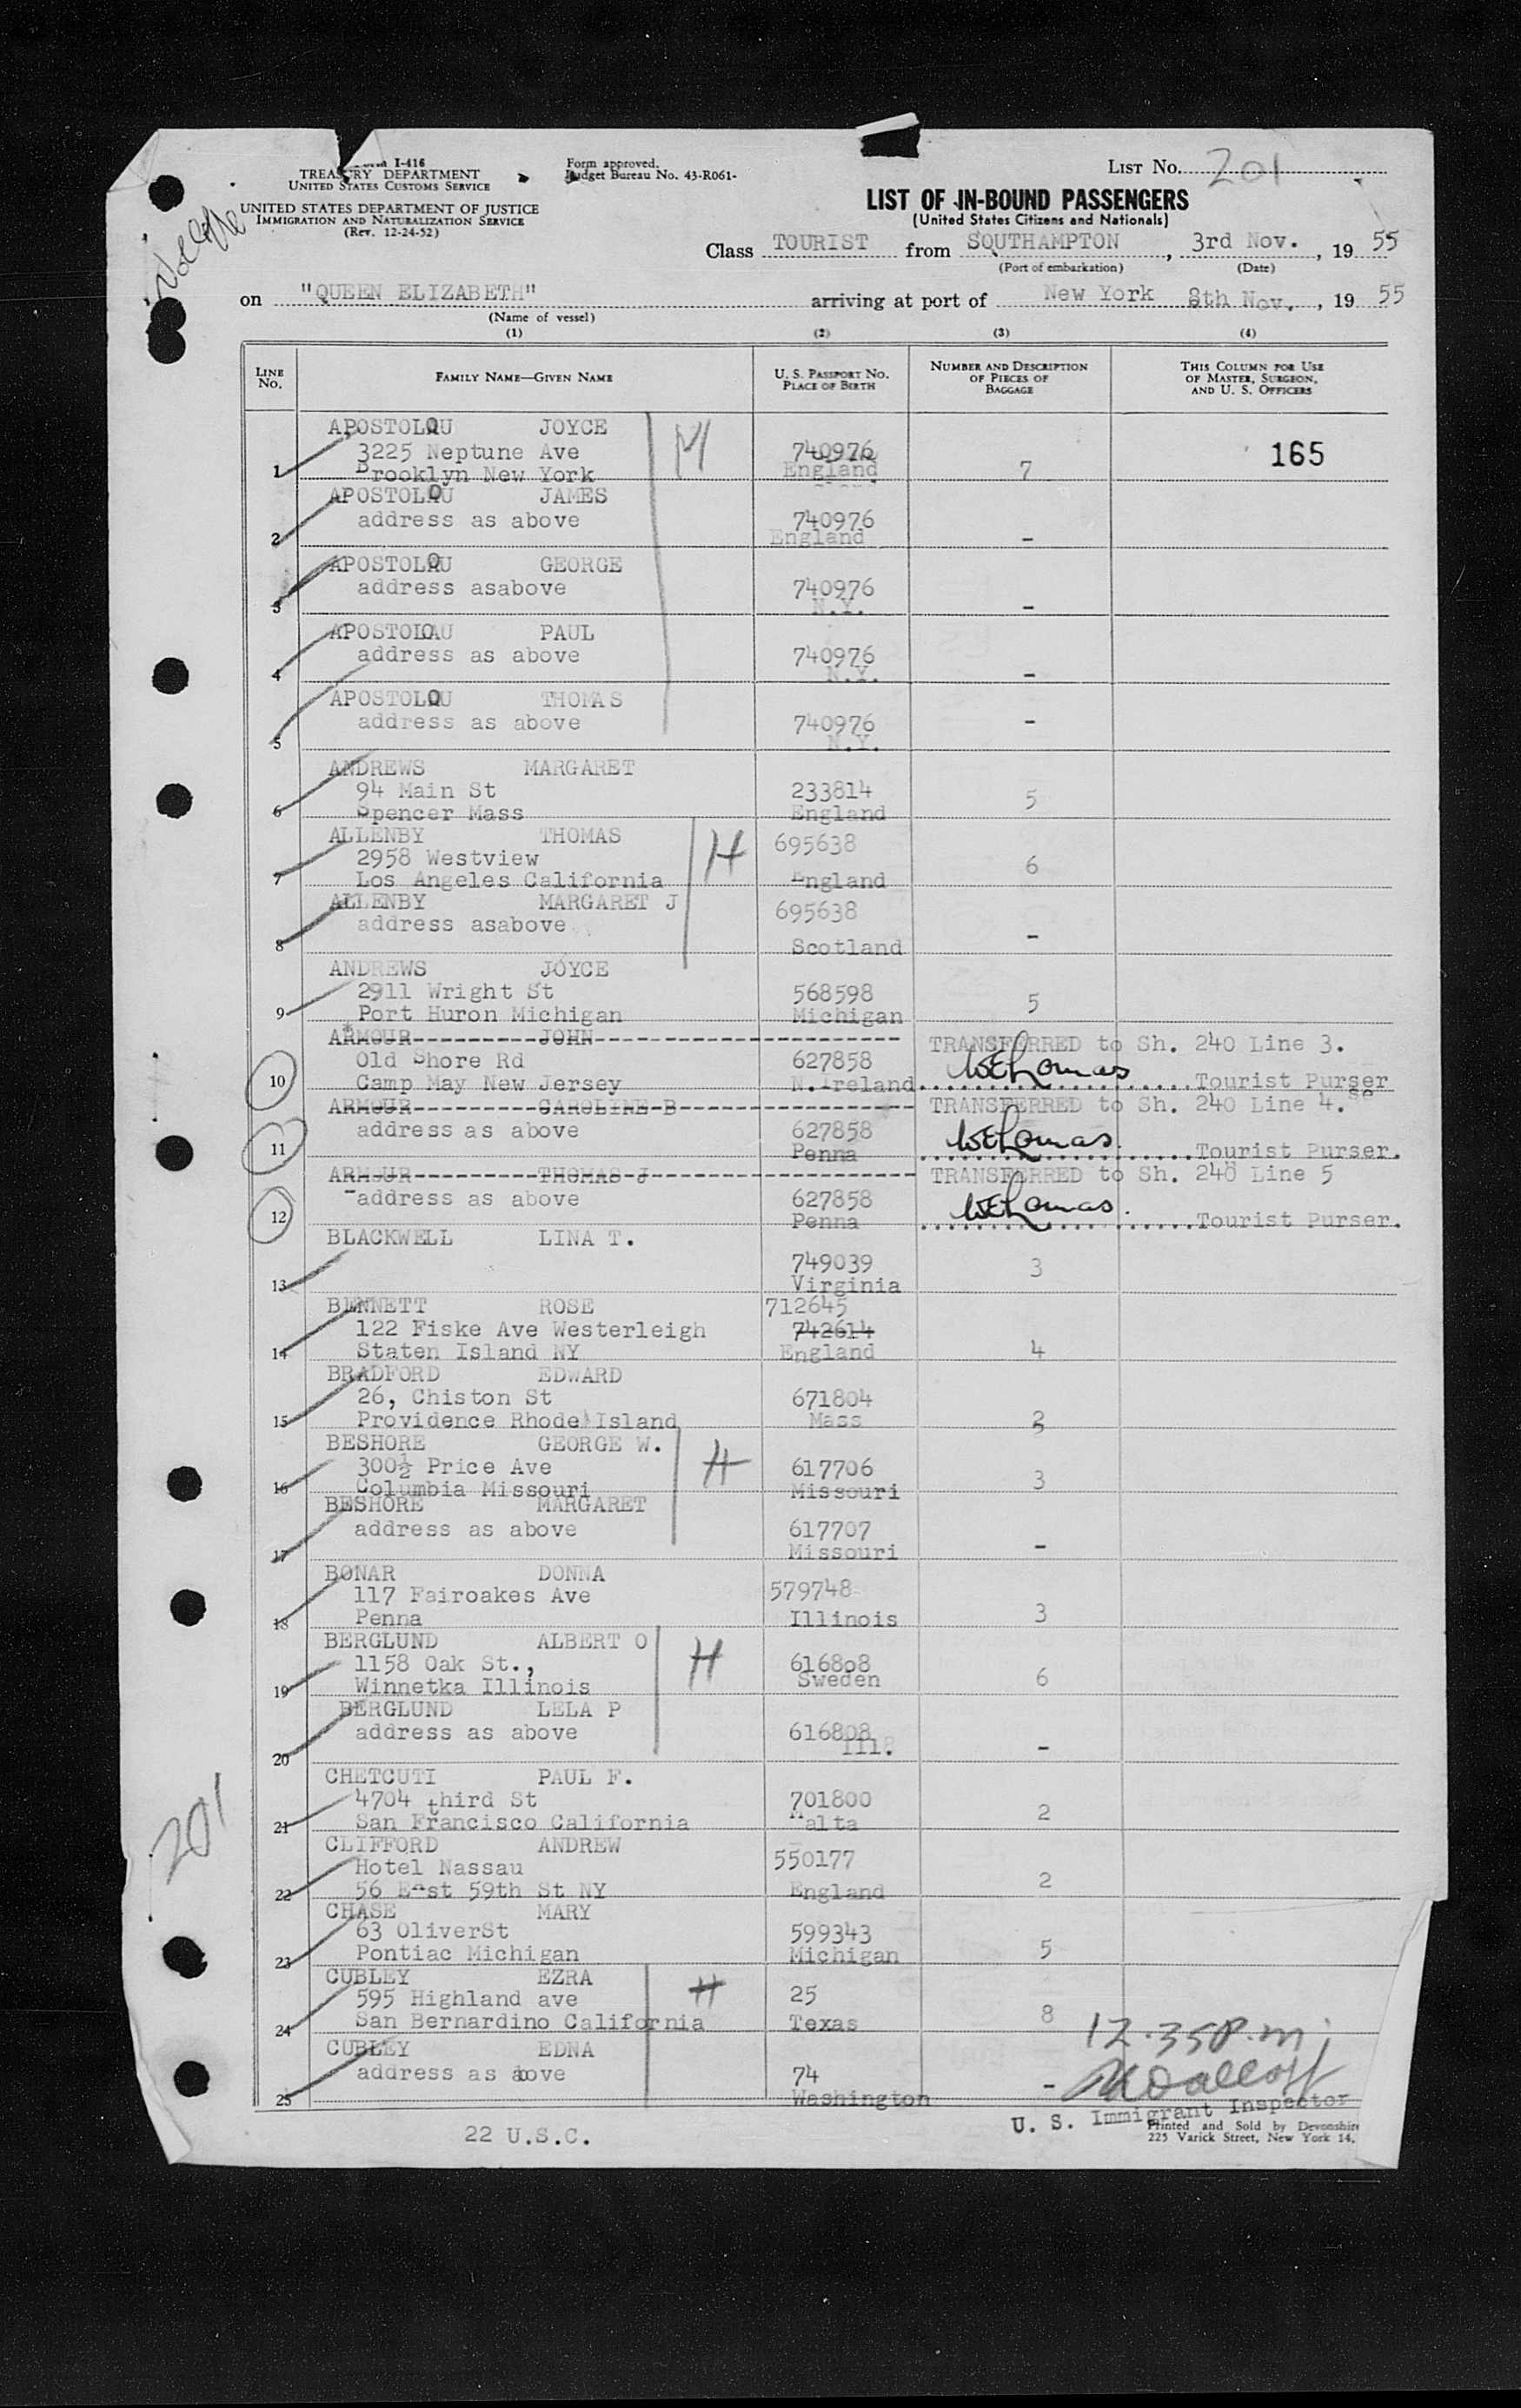 Form I-416
TREASURY DEPARTMENT
UNITED STATES CUSTOMS SERVICE
UNITED STATES DEPARTMENT OF JUSTICE
IMMIGRATION AND NATURALIZATION SERVICE
(Rev. 12-24-52)
Form approved.
Budget Bureau No. 43-R061-
LIST No. 201
LIST OF IN-BOUND PASSENGERS
(United States Citizens and Nationals)
Class TOURIST from SOUTHAMPTON, 3rd Nov., 19 55
(Port of embarkation) (Date)
on "QUEEN ELIZABETH" arriving at port of New York 8th Nov., 19 55
(Name of vessel)
(1) (2) (3) (4)
LINE No. FAMILY NAME—GIVEN NAME U. S. PASSPORT NO. PLACE OF BIRTH NUMBER AND DESCRIPTION OF PIECES OF BAGGAGE THIS COLUMN FOR USE OF MASTER, SURGEON, AND U. S. OFFICERS
APOSTOLOU JOYCE M
3225 Neptune Ave 740976 165
1 Brooklyn New York England 7
APOSTOLOU JAMES
address as above 740976
2 England -
APOSTOLOU GEORGE
address asabove 740976
3 N.Y. -
APOSTOLOU PAUL
address as above 740976
4 N.Y. -
APOSTOLOU THOMAS
address as above 740976 -
5 N.Y.
ANDREWS MARGARET
94 Main St 233814 5
6 Spencer Mass England
ALLENBY THOMAS H 695638
2958 Westview 6
7 Los Angeles California England
ALLENBY MARGARET J 695638
address asabove
8 Scotland -
ANDREWS JOYCE
2911 Wright St 568598 5
9 Port Huron Michigan Michigan
ARMOUR JOHN TRANSFERRED to Sh. 240 Line 3.
Old Shore Rd 627858 WEThomas
10 Camp May New Jersey N.Ireland Tourist Purser
ARMOUR CAROLINE B TRANSFERRED to Sh. 240 Line 4.
address as above 627858 WEThomas.
11 Penna Tourist Purser.
ARMOUR THOMAS J TRANSFERRED to Sh. 240 Line 5
address as above 627858 WEThomas.
12 Penna Tourist Purser.
BLACKWELL LINA T.
749039 3
13 Virginia
BENNETT ROSE 712645
122 Fiske Ave Westerleigh 742614
14 Staten Island NY England 4
BRADFORD EDWARD
26, Chiston St 671804
15 Providence Rhode Island Mass
BESHORE GEORGE W. H
300½ Price Ave 617706 3
16 Columbia Missouri Missouri
BESHORE MARGARET
address as above 617707
17 Missouri -
BONAR DONNA
117 Fairoakes Ave 579748
18 Penna Illinois 3
BERGLUND ALBERT O H
1158 Oak St., 616808
19 Winnetka Illinois Sweden 6
BERGLUND LELA P
address as above 616808
20 Ill. -
CHETCUTI PAUL F.
4704 third St 701800 2
21 San Francisco California Malta
CLIFFORD ANDREW
Hotel Nassau 550177 2
22 56 East 59th St NY England
CHASE MARY
63 OliverSt 599343 5
23 Pontiac Michigan Michigan
CUBLEY EZRA H
595 Highland ave 25 8
24 San Bernardino California Texas
CUBLEY EDNA 12.35P.m.
address as above 74 -
25 Washington
22 U.S.C.
U. S. Immigrant Inspector
Printed and Sold by Devonshire
225 Varick Street, New York 14,
201